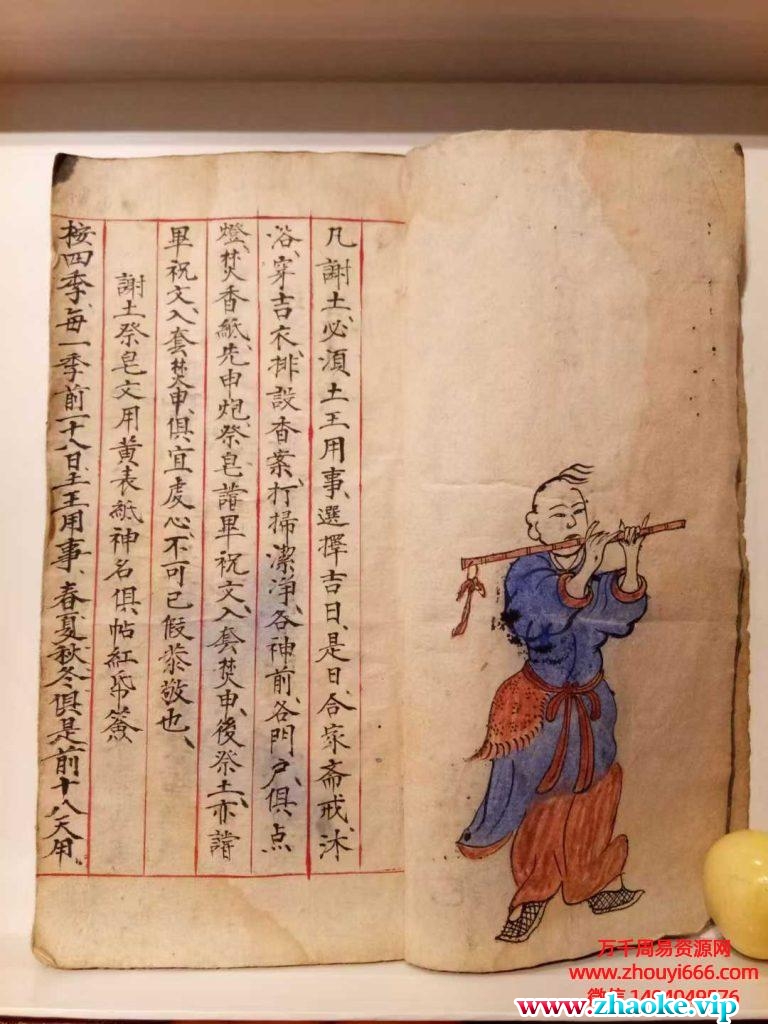 凡謝土、必須土王用事、選擇吉日、是日、合家斋戒、沐
浴、穿吉衣、排設香案、打掃潔净、各神前、各門户、俱点
燈、焚香紙、先申炮、祭皂、讀畢、祝文、入套焚申、後祭土、亦讀
畢祝文、入套焚申、俱宜虔心、不可已假恭敬也、
謝土祭皂文用黄表紙神名俱帖紅
按四季、每一季前一十八日、土王用事、春夏秋冬俱是前十八天用、
万千周易资源网
www.zhouyi666.com
微信
www.zhaoke.vip